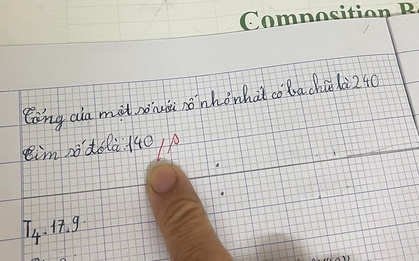 Composition B
Tổng của một số với số nhỏ nhất có ba chữ là 240
Tìm số đó là: 140
T4.17.9